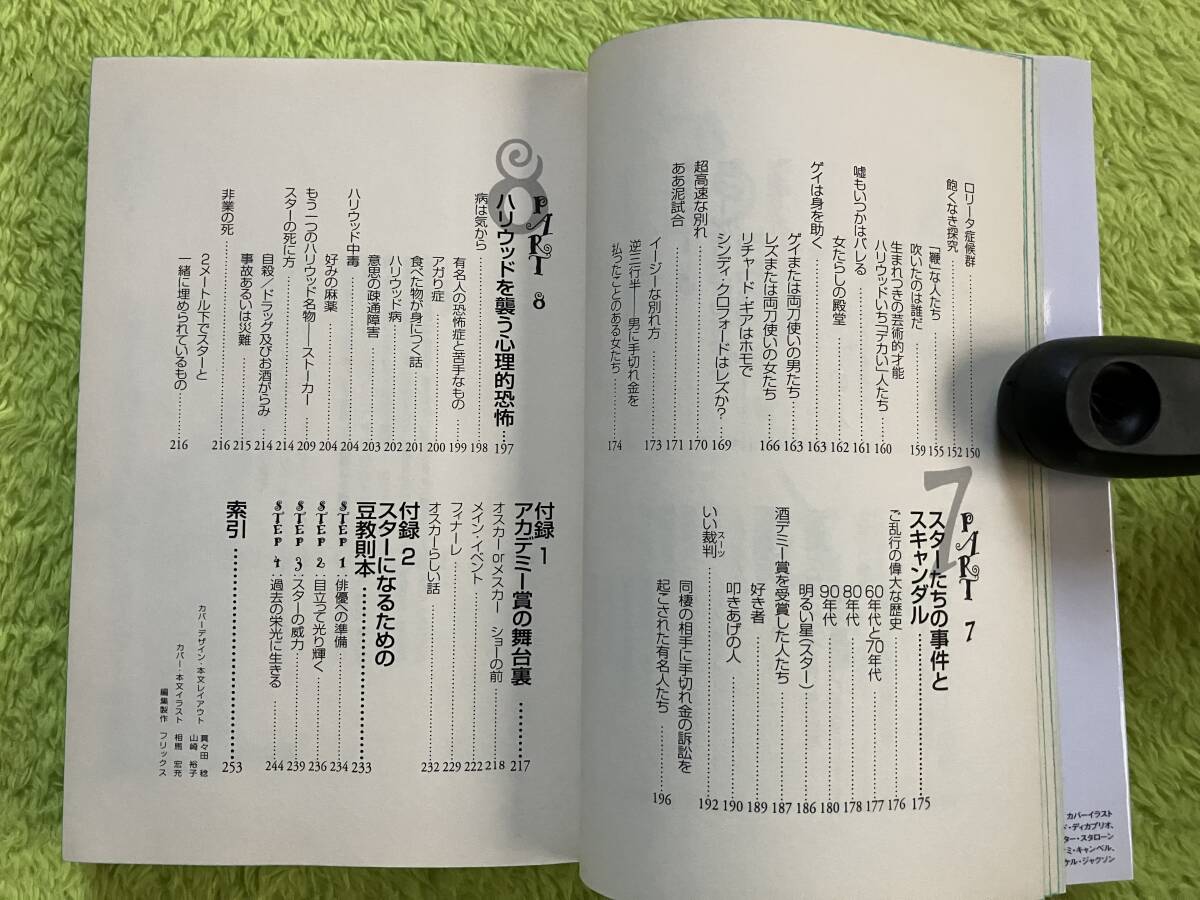 ロリータ症候群……150
飽くなき探究……152
「鞭」な人たち……155
吹いたのは誰だ……159
生まれつきの芸術的才能
ハリウッドいち「デカい」人たち……160
嘘もいつかはバレる……161
女たらしの殿堂……162
ゲイは身を助く……163
ゲイまたは両刀使いの男たち……163
レズまたは両刀使いの女たち……166
リチャード・ギアはホモで
シンディ・クロフォードはレズか?……169
超高速な別れ……170
ああ泥試合……171
イージーな別れ方……173
逆三行半——男に手切れ金を
払ったことのある女たち……174
7
PART 7
スターたちの事件と
スキャンダル……175
ご乱行の偉大な歴史……176
60年代と70年代……177
80年代……178
90年代……180
明るい星(スター)……186
酒デミー賞を受賞した人たち……187
好き者……189
叩きあげの人……190
いい裁判スーツ……192
同棲の相手に手切れ金の訴訟を
起こされた有名人たち……196
8
PART 8
ハリウッドを襲う心理的恐怖…197
病は気から……198
有名人の恐怖症と苦手なもの……199
アガり症……200
食べた物が身につく話……201
ハリウッド病……202
意思の疎通障害……203
ハリウッド中毒……204
好みの麻薬……204
もう一つのハリウッド名物——ストーカー……209
スターの死に方……214
自殺/ドラッグ及びお酒がらみ……214
事故あるいは災難……215
非業の死……216
2メートル下でスターと
一緒に埋められているもの……216
付録1
アカデミー賞の舞台裏……217
オスカー or メスカー ショーの前……218
メイン・イベント……222
フィナーレ……229
オスカーらしい話……232
付録2
スターになるための
豆教則本……233
STEP 1:俳優への準備……234
STEP 2:目立って光り輝く……236
STEP 3:スターの威力……239
STEP 4:過去の栄光に生きる……244
索引……253
カバーデザイン・本文レイアウト 真々田 稔
山崎 裕子
カバー・本文イラスト 相馬 宏充
編集製作 フリックス
カバーイラスト
ド・ディカプリオ、
ター・スタローン
ミ・キャンベル、
ケル・ジャクソン